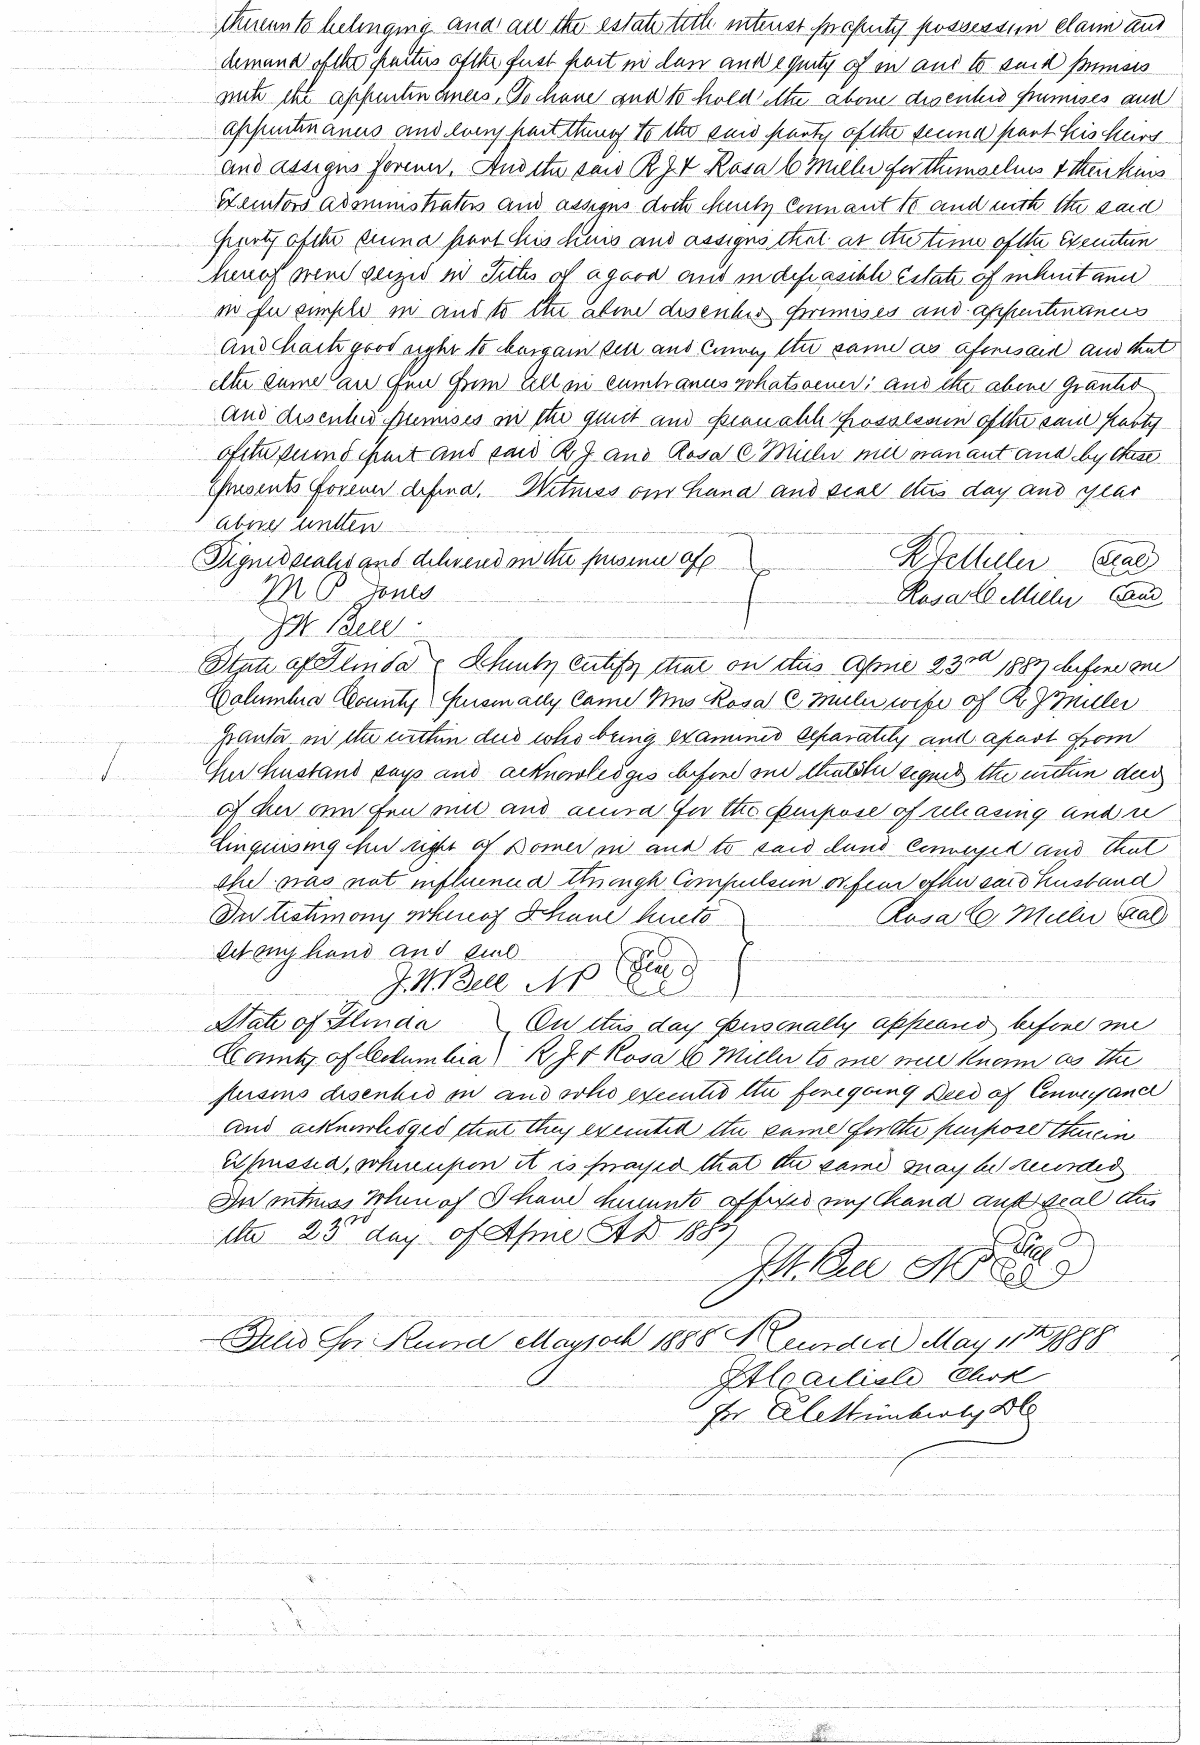 thereunto belonging and all the estate title interest property possession claim and
demand of the parties of the first part in law and equity of in and to said premises
with the appertinances, To have and to hold the above described premises and
appertinances and every part thereof to the said party of the second part his heirs
and assigns forever. And the said R J & Rosa C Miller for themselves & their heirs
Executors administrators and assigns doth hereby covenant to and with the said
party of the second part his heirs and assigns that at the time of the Execution
hereof were seized in Titles of a good and indefeasible Estate of inheritance
in fee simple in and to the above described premises and appertinances
and hath good right to bargain sell and Convey the same as aforesaid and that
the same are free from all in cumbrances whatsoever; and the above granted
and described premises in the quiet and peaceable possession of the said party
of the second part and said R J and Rosa C Miller will warrant and by these
presents forever defend. Witness our hand and seal this day and year
above written
Signed sealed and delivered in the presence of R J Miller Seal
M P Jones Rosa C Miller Seal
J W Bell
State of Florida I hereby certify that on this April 23rd 1887 before me
Columbia County personally came Mrs Rosa C Miller wife of R J Miller
grantor in the within deed who being examined separately and apart from
her husband says and acknowledges before me that she signed the within deed
of her own free will and accord for the purpose of releasing and re
linquising her right of Dower in and to said land Conveyed and that
she was not influenced through Compulsion or fear of her said husband
In testimony whereof I have hereto Rosa C Miller Seal
set my hand and seal
J. W. Bell NP Seal
State of Florida On this day personally appeared before me
County of Columbia R J & Rosa C Miller to me well known as the
persons described in and who executed the foregoing Deed of Conveyance
and acknowledged that they executed the same for the purpose therein
Expressed, whereupon it is prayed that the same may be recorded
In witness whereof I have hereunto affixed my hand and seal this
the 23rd day of April AD 1887
J. W. Bell NP Seal
Filed for Record May 10th 1888 Recorded May 11th 1888
Carlisle Clerk
for Kimberly DC